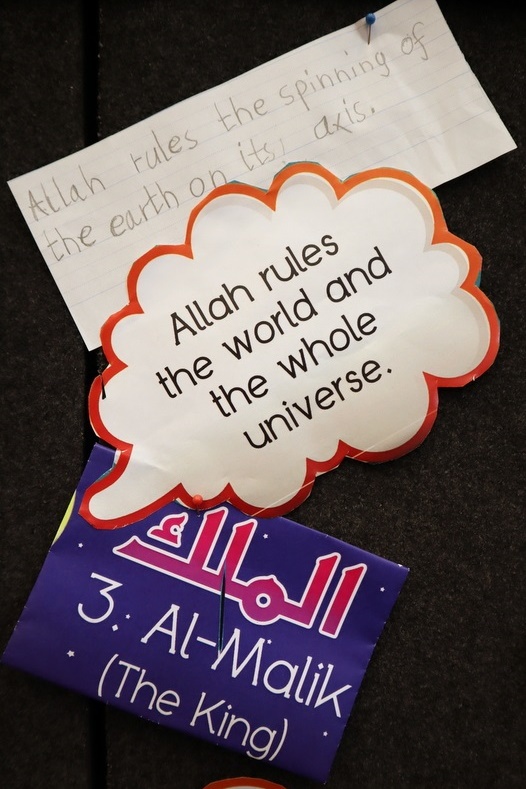 Allah rules the spinning of
the earth on its axis.
Allah rules
the world and
the whole
universe.
الملك
3. Al-Malik
(The King)